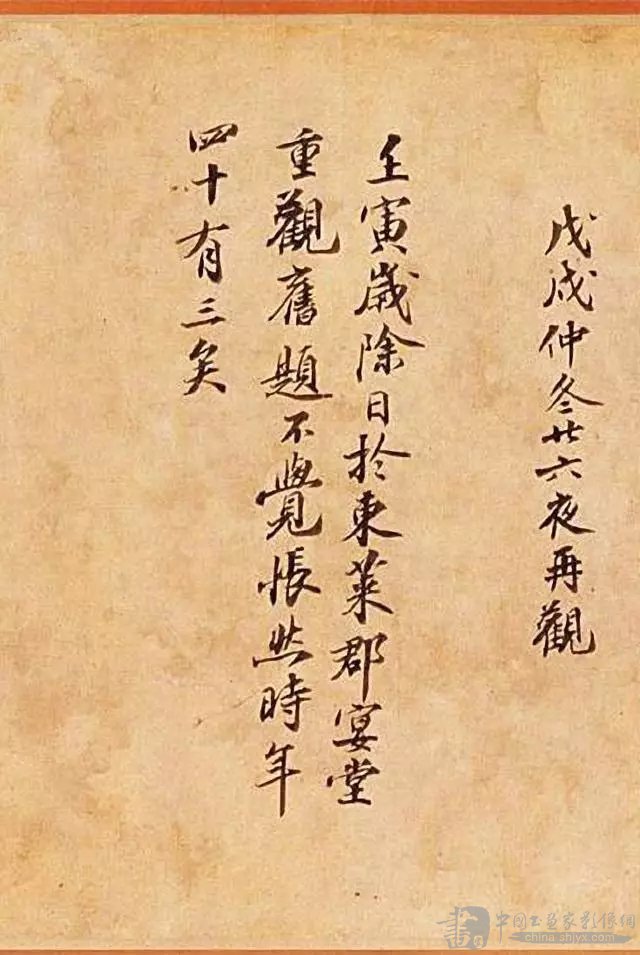 戊戌仲冬廿六夜再觀
壬寅歲除日於東萊郡宴堂
重觀舊題不覺悵然時年
四十有三矣
中國書畫家影像網
china.shjyx.com